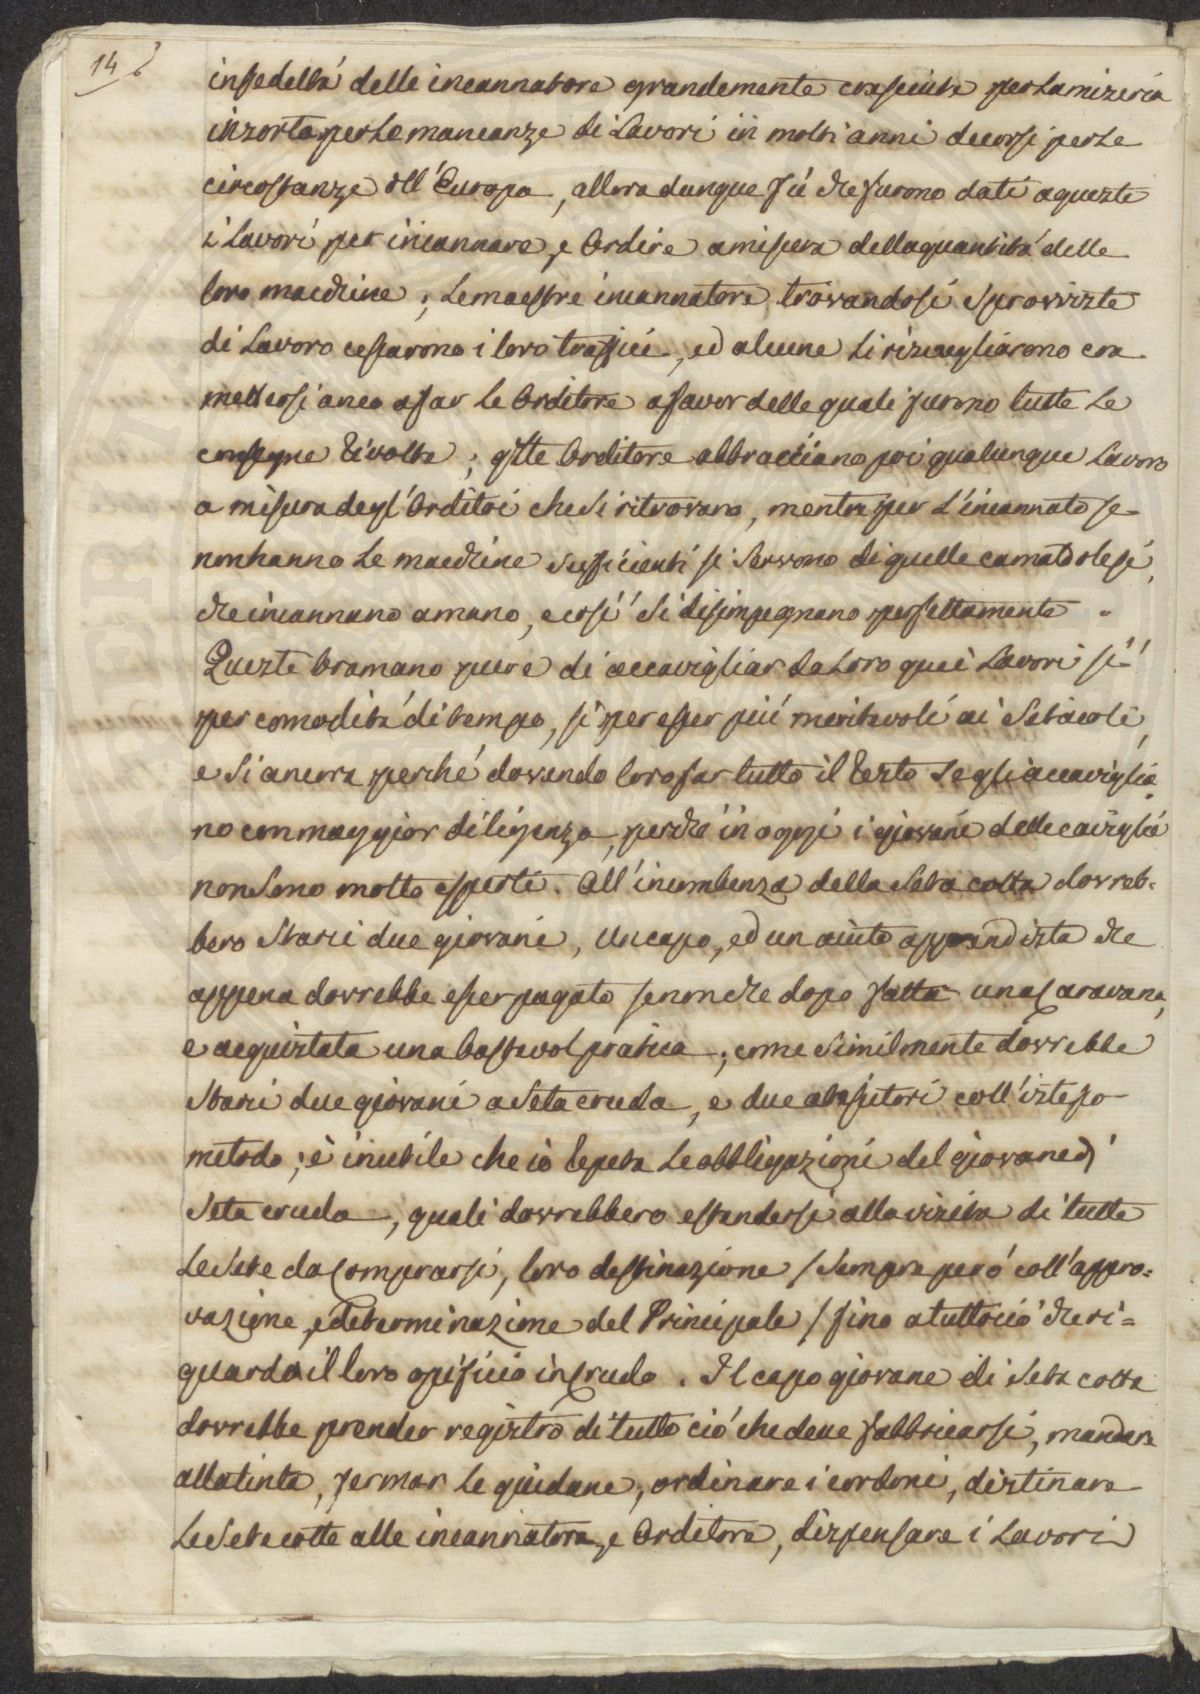 14
infedeltà delle incannatore grandemente cresciuta per la mizeria
inzorta per le mancanze di Lavori in molti anni decorsi per le
circostanze dell'Europa, allora dunque fù che furono dati a quezte
i Lavori per incannare, e Ordire a misura della quantità delle
loro macchine; Le maestre incannatore trovandosi sprovvizte
di Lavoro cessarono i loro traffici, ed alcune si rizvegliarono con
mettersi anco a far Le Orditore a favor delle quali furono tutte Le
consegne rivolte; q.ste Orditore abbracciano poi qualunque Lavoro
a misura degl'Orditoi che si ritrovano, mentre per L'incannato se
non hanno Le macchine sufficienti si servono di quelle camaldolesi,
che incannano a mano, e così si disimpegnano perfettamente.
Quezte bramano pure di accavigliar da Loro quei Lavori sì
per comodità di tempo, sì per esser più meritevoli ai Setaioli,
e sì ancora perché dovendo loro far tutto il rezto Le gli accaviglia-
no con maggior diligenza, perchè in oggi i giovani delle caviglie
non sono molto esperti. All'incumbenza della Seta cotta dovreb-
bero starci due giovani, un capo, ed un aiuto apprendizta che
appena dovrebbe esser pagato se non che dopo fatta una Caravana,
e acquiztata una bastevol pratica; come similmente dovrebbe
starci due giovani a Seta cruda, e due abburattori coll'iztesso
metodo; è inutile che io repeta Le obbligazioni del giovane di
Seta cruda, quali dovrebbero estendersi alla vizita di tutte
Le Sete da Comprarsi, loro destinazione / sempre però coll'appro=
vazione, e determinazione del Principale / fino a tutto ciò che ri=
guarda il loro opificio in Crudo. Il capo giovane di Seta cotta
dovrebbe prender regiztro di tutto ciò che deve fabbricarsi, mandare
alla tinta, fermar Le guidane, ordinare i cordoni, diztinare
Le Sete cotte alle incannatore, e Orditore, dizpensare i Lavori